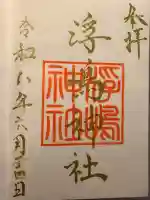 奉拝
浮島神社
浮嶋
神社
令和六年六月十四日